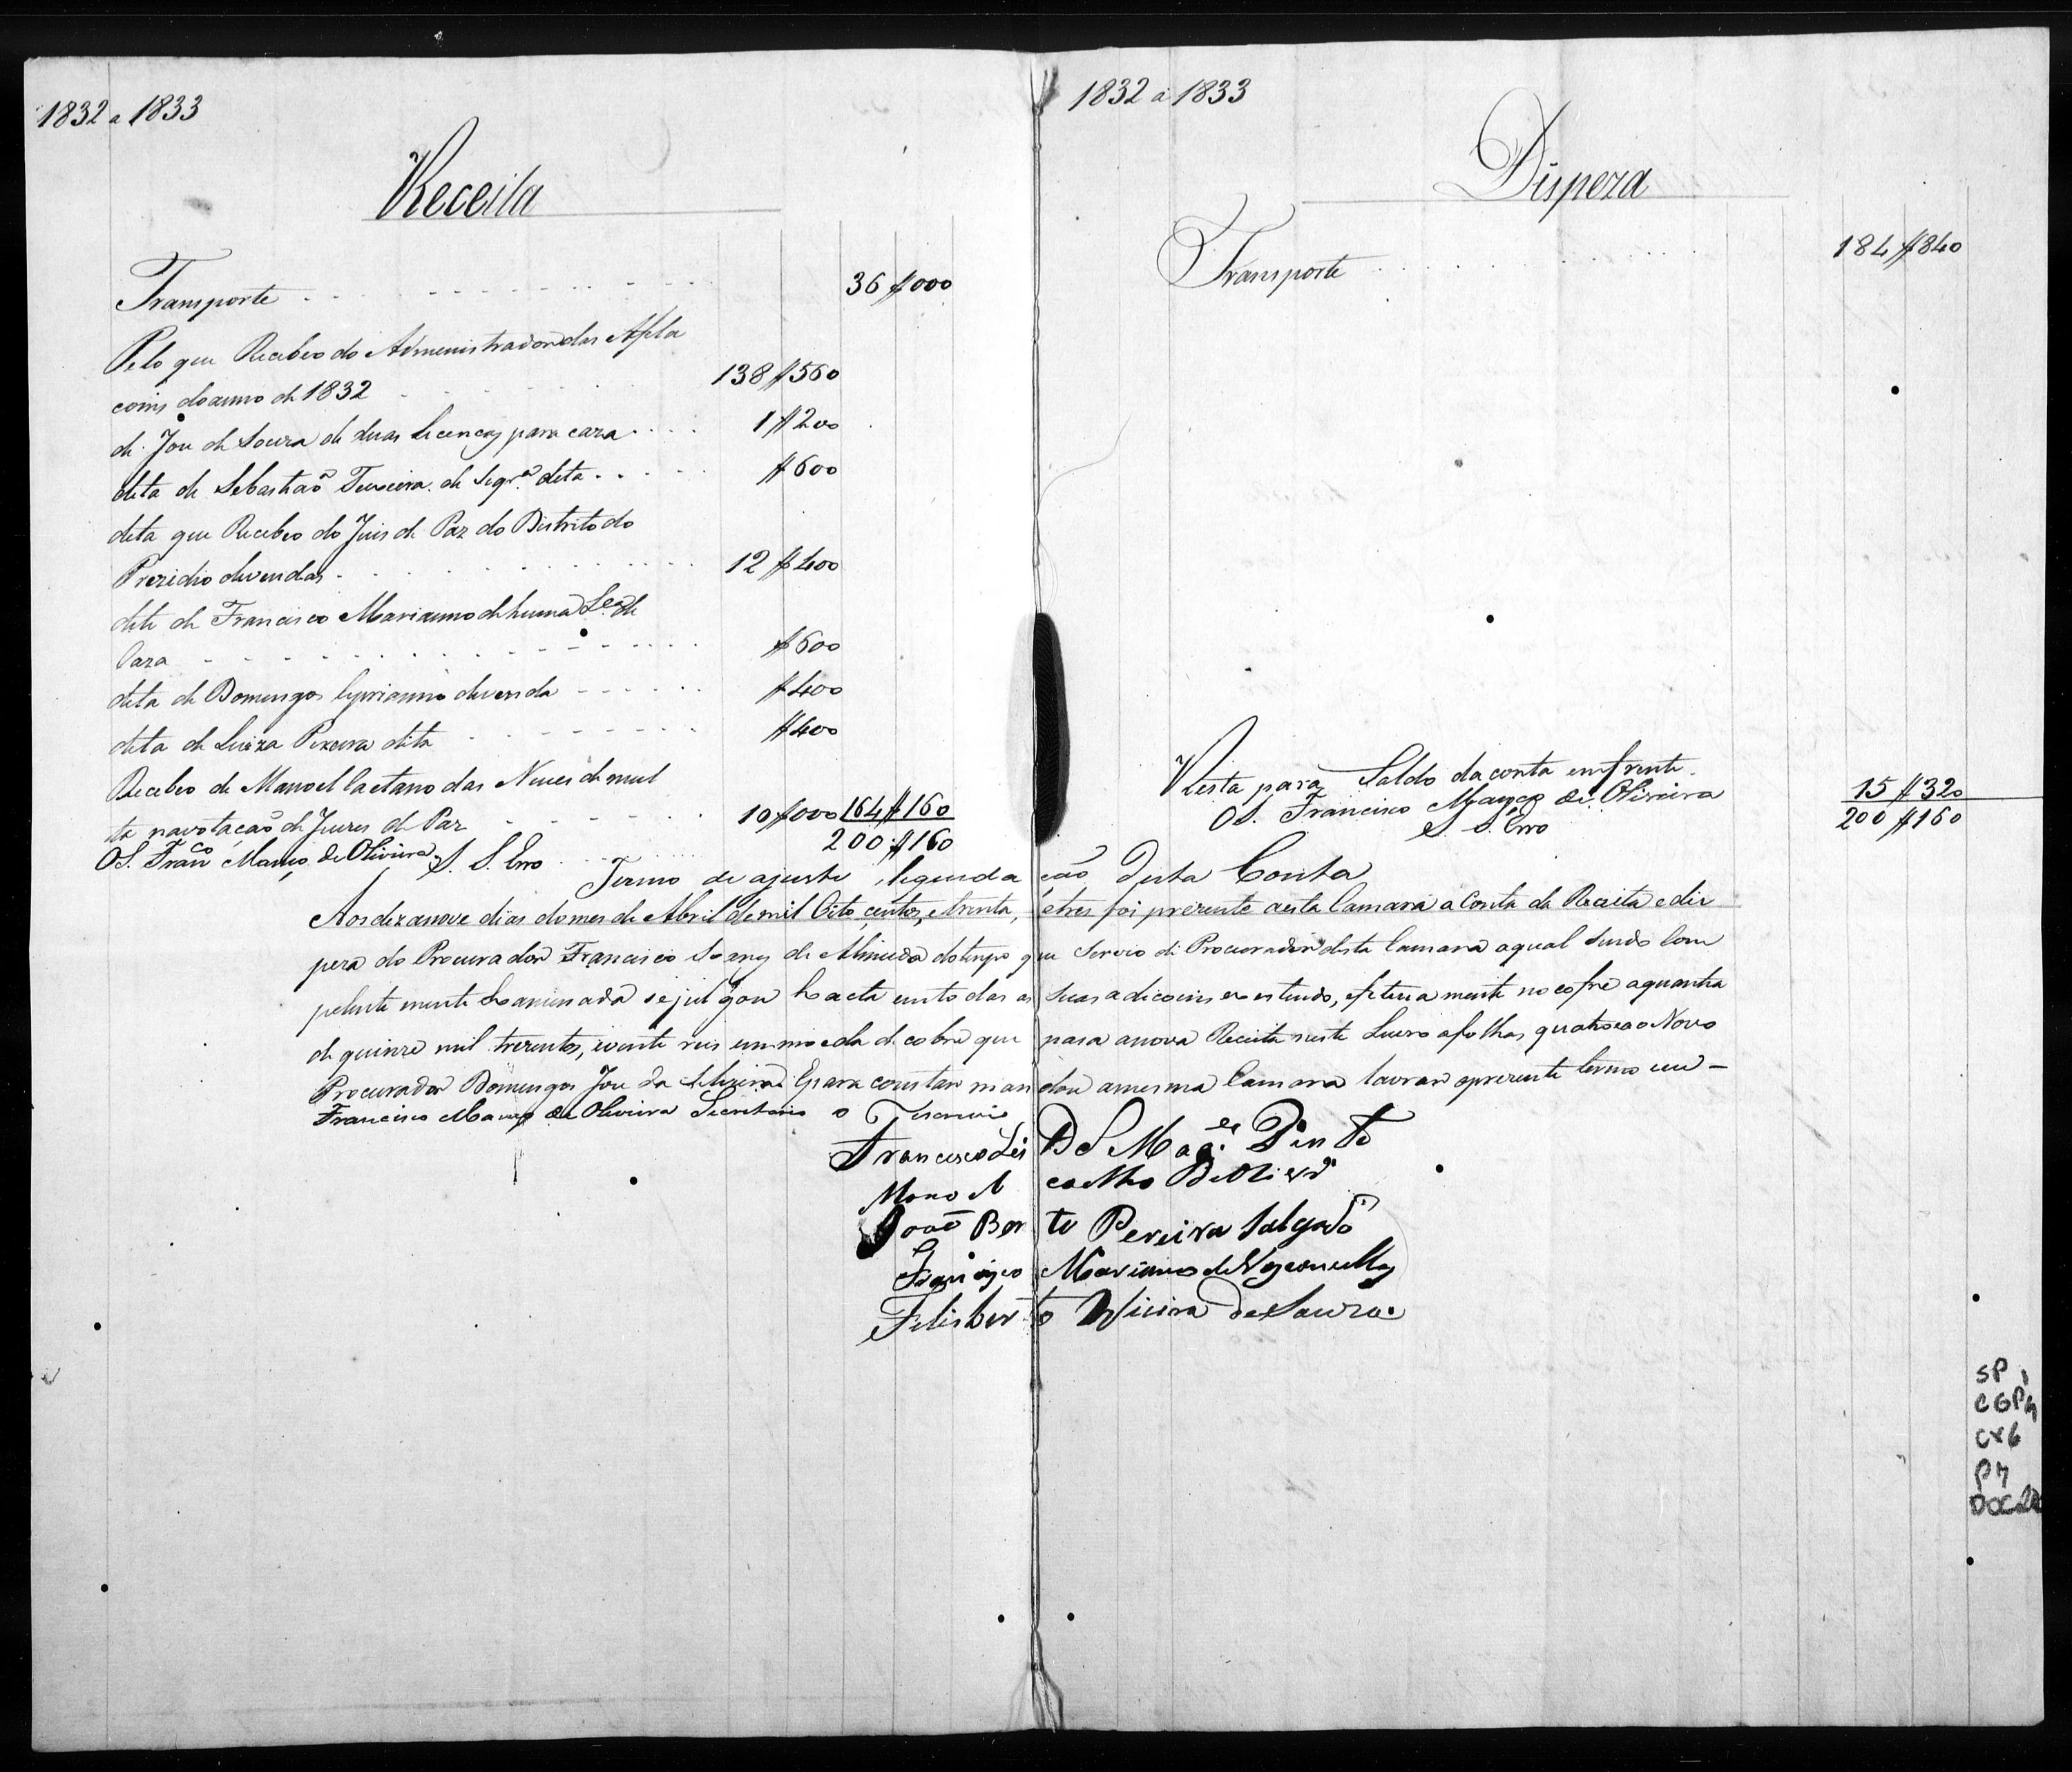 1832 a 1833
Receita
Transporte 36$000
Pelo que Recebeo do Administrador das Afela
coins do anno de 1832 138$560
de Joze de Souza de duas Licencas para caza 1$200
dita de Sebastiaõ Teixeira de Segr.ª dita $600
dita que Recebeo do Juis de Paz do Distrito do
Prezidio devendas 12$400
dito de Francisco Marianno de huma L.ca de
Caza $600
dita de Domingos Cyprianno devenda $400
dita de Luiza Pereira dita $400
Recebeo de Manoel Caetano das Neves de mul
ta navotaçaõ de Juizes de Paz 10$000 164$160
200$160
OS. Franco Março de Oliveira S. S. Erro
1832 a 1833
Dispeza
Transporte 184$840
Resta para Saldo da conta emfrente 15$320
OS. Francisco Março de Oliveira 200$160
S. S. Erro
Termo de ajuste, legenda çaõ Desta Conta
Aos dezanove dias do mes de Abril de mil Oito centos, etrenta, etres foi prezente aesta Camara a Conta da Receita edis
peza do Procurador Francisco Soares de Almeida dotempo que Servio di Procurador desta Camara aqual sendo Com
petente mente Examinada sejulgou Exacta emtodas as suas adicoins existindo, efetiva mente no cofre aquantia
de quinze mil trezentos, evinte reis emmoeda de cobre que passa anova Receita neste Livro afolhas quatro ao Novo
Procurador Domingos Joze da Silveira Epara constar man dou amesma Camara lavrar oprezente termo eu
Francisco Março de Oliveira Secretario o Escrevi
Francisco de S Mag.es Pinto
Manoel Coelho de Olivr.ª
Joaõ Bento Pereira Salgado
Francisco Mariano de Vasconcellos
Felisberto Vieira de Souza
SP
CGP1
CX6
P7